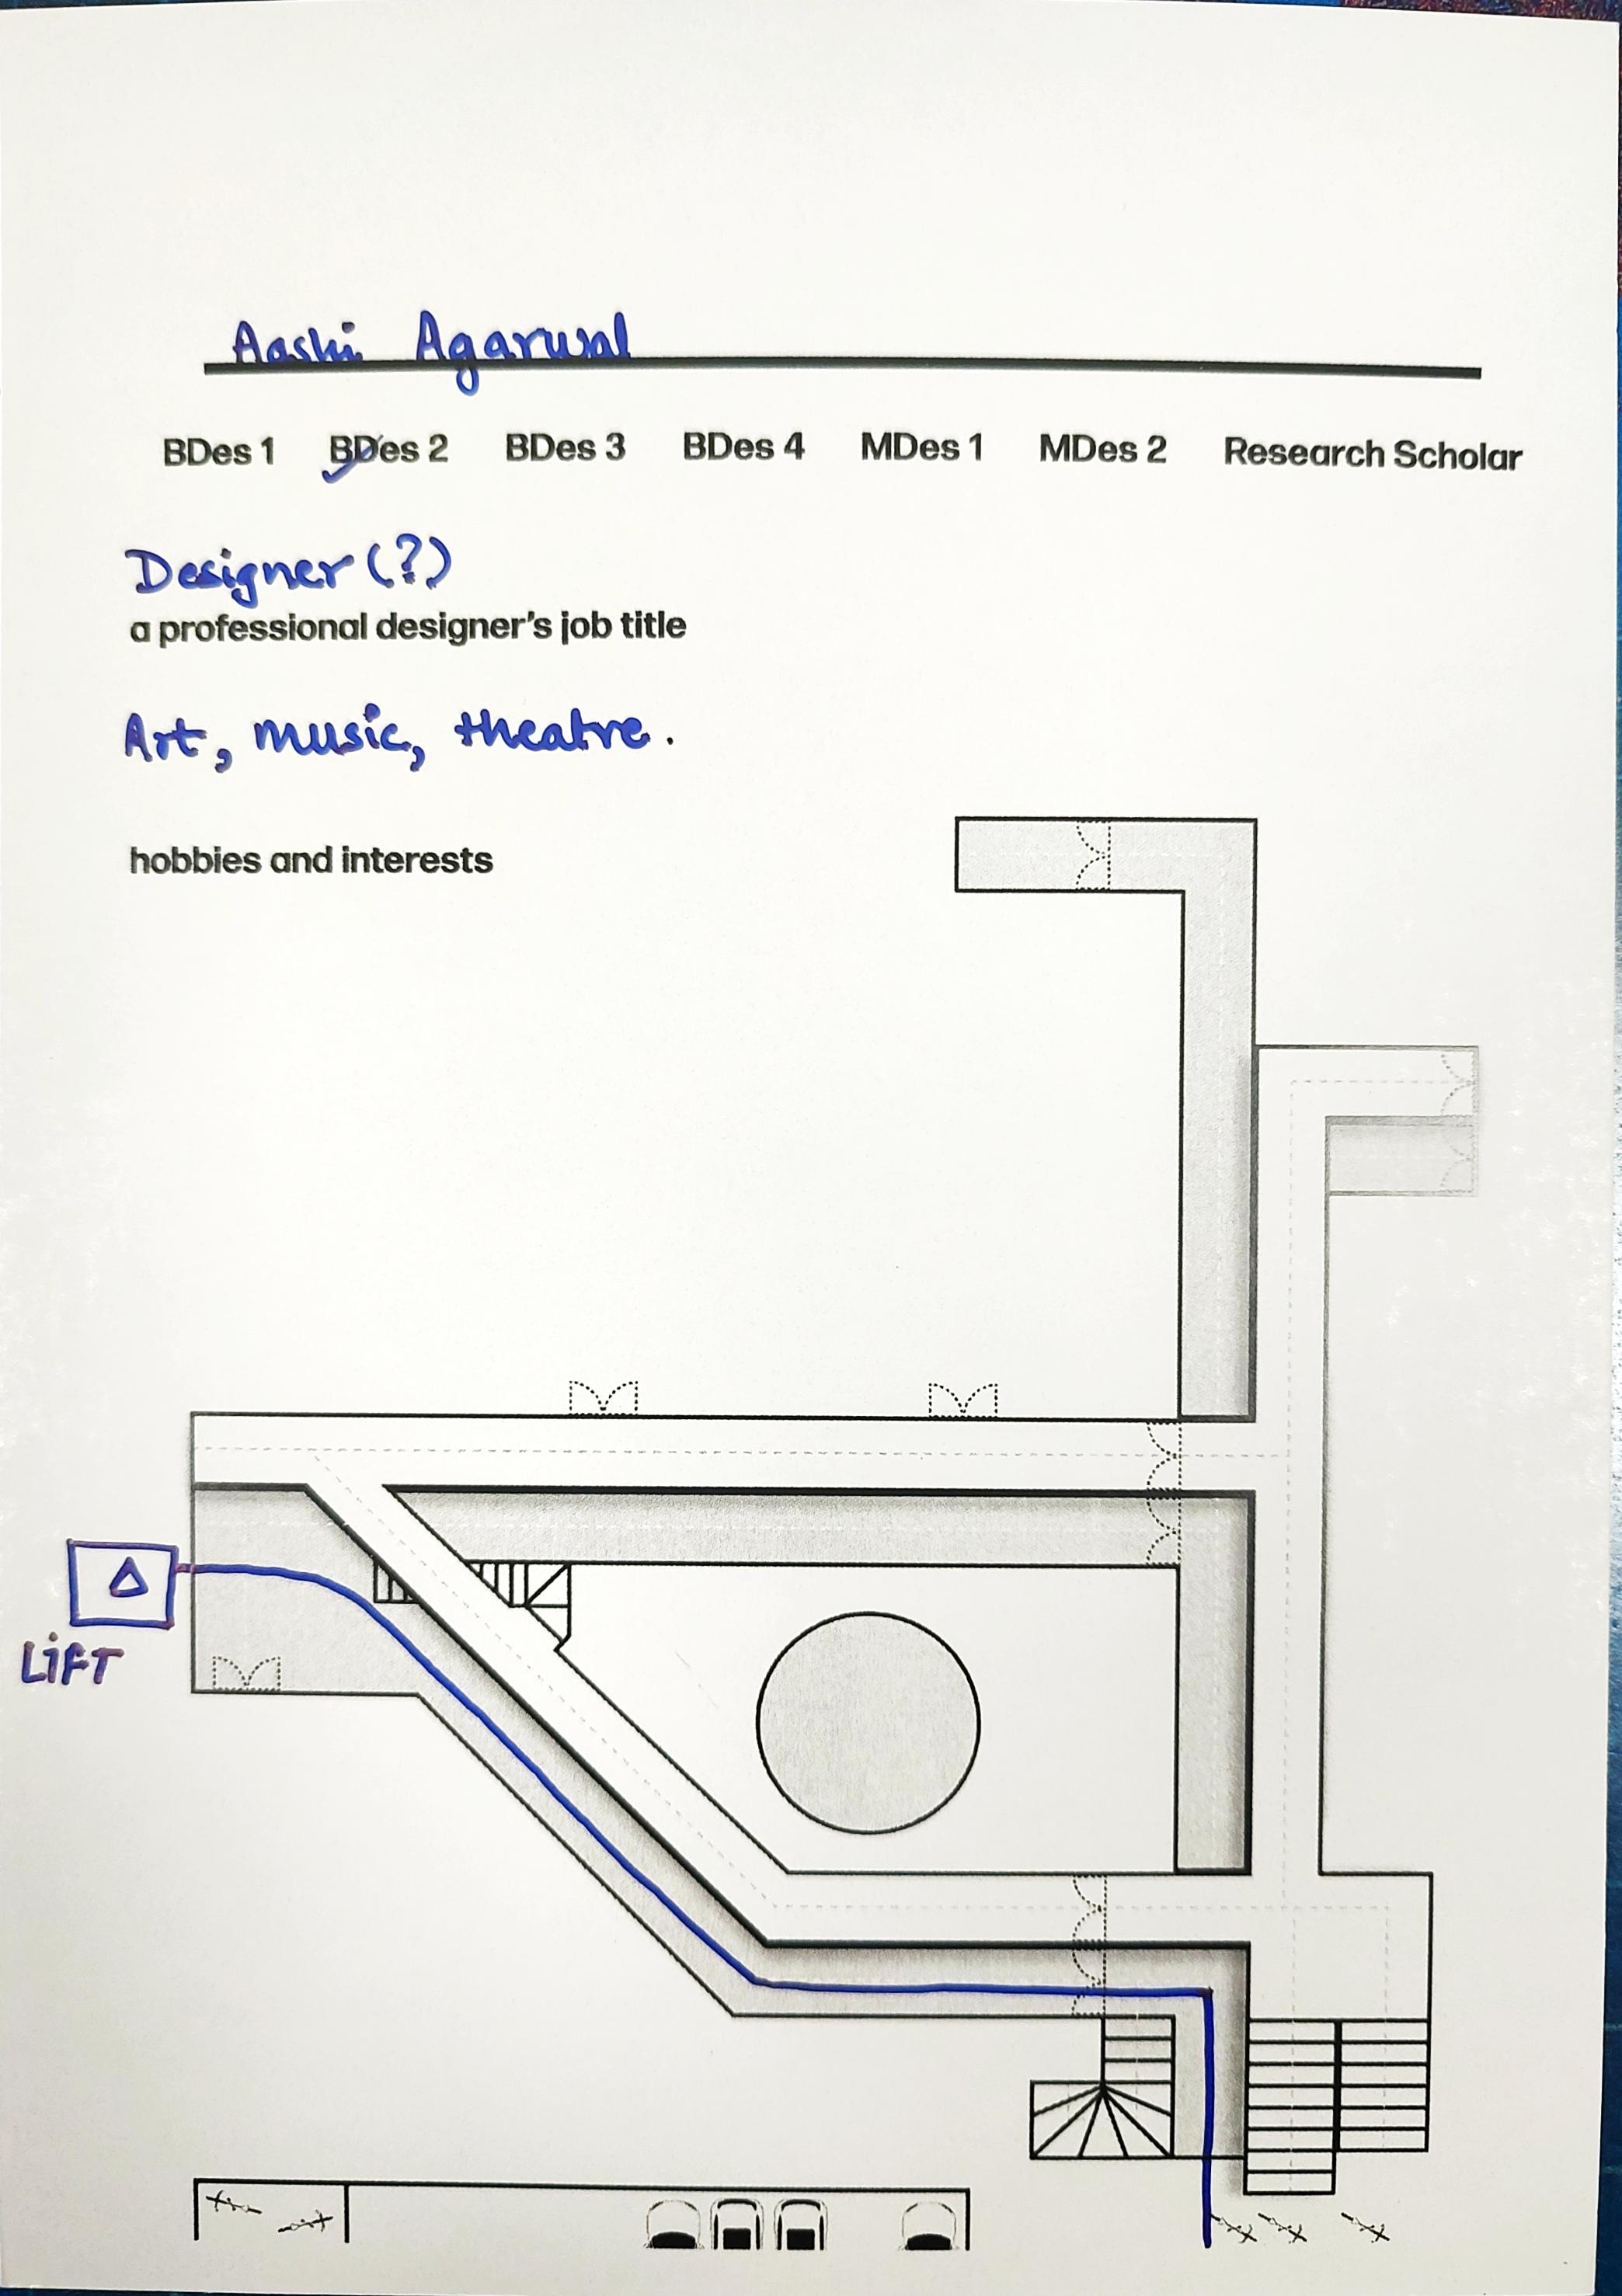 Aashi Agarwal
BDes 1 BDes 2 BDes 3 BDes 4 MDes 1 MDes 2 Research Scholar
Designer (?)
a professional designer's job title
Art, music, theatre.
hobbies and interests
LIFT